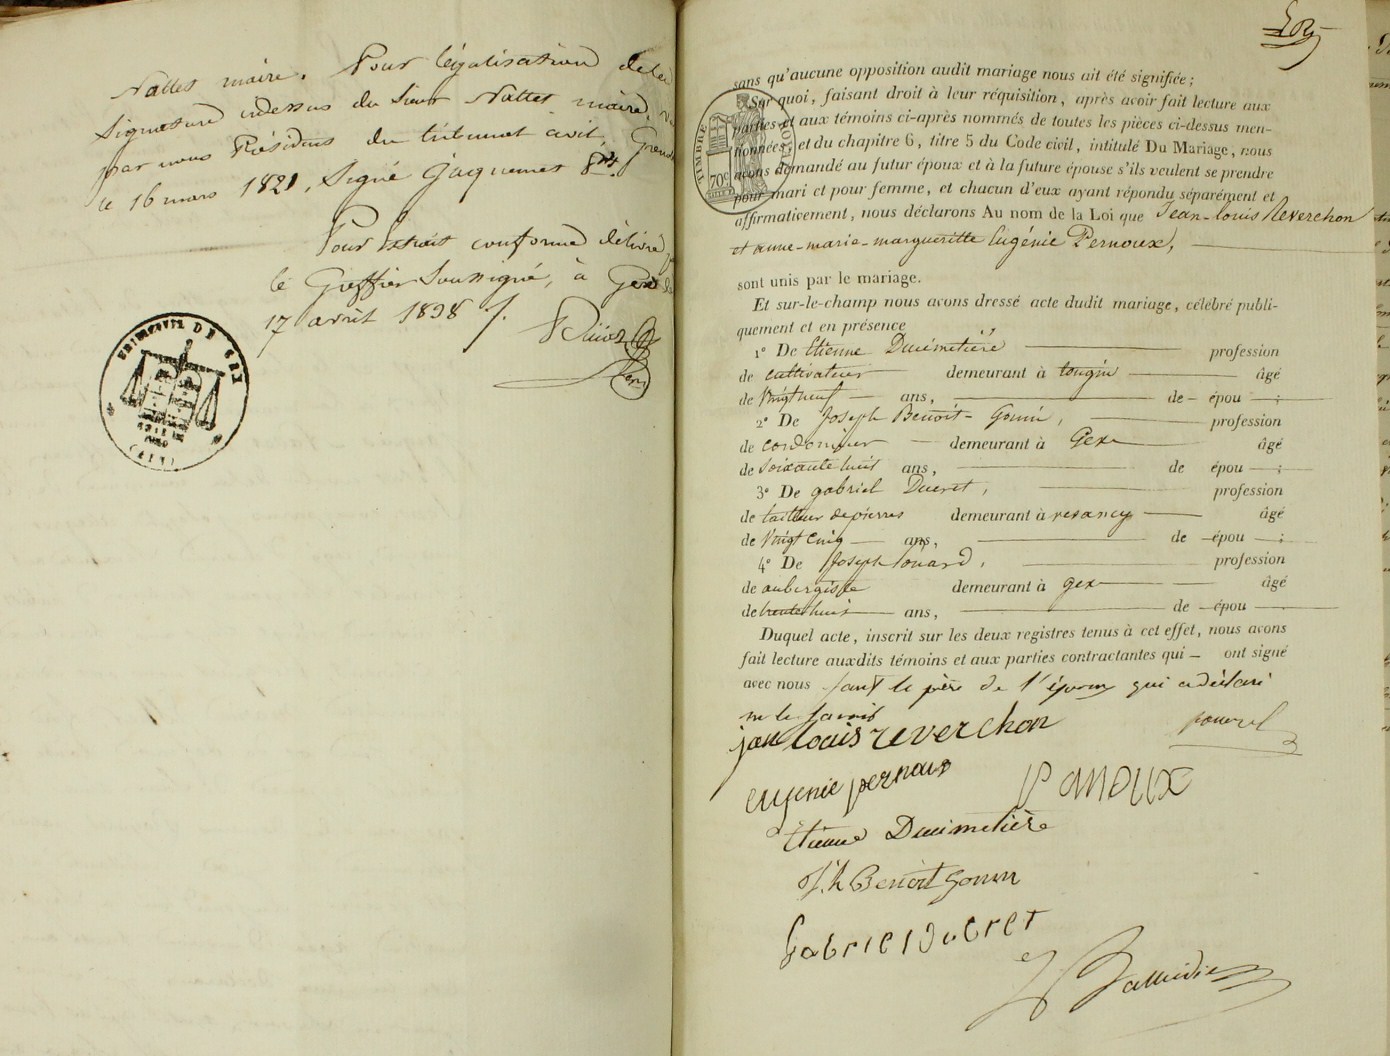 Nallet maire. Pour légalisation de la
signature cidessus du Sieur Nallet maire,
par nous Président du tribunal civil, 
le 16 mars 1821, Signé Jaquemet
Pour Extrait conforme délivré
le Greffier Soussigné, à Gex
17 avril 1838
TIMBRE ROYAL
70c
sans qu'aucune opposition audit mariage nous ait été signifiée ;
Sur quoi, faisant droit à leur réquisition, après avoir fait lecture aux
parties et aux témoins ci-après nommés de toutes les pièces ci-dessus men-
tionnées, et du chapitre 6, titre 5 du Code civil, intitulé Du Mariage, nous
avons demandé au futur époux et à la future épouse s'ils veulent se prendre
pour mari et pour femme, et chacun d'eux ayant répondu séparément et
affirmativement, nous déclarons Au nom de la Loi que Jean-Louis Reverchon
et anne-marie-margueritte Eugénie Pernoux,
sont unis par le mariage.
Et sur-le-champ nous avons dressé acte dudit mariage, célébré publi-
quement et en présence
1° De Etienne Ducimetière profession
de cultivateur demeurant à tougin âgé
de Vingt neuf ans, de épou ;
2° De Joseph Benoit-Gonin, profession
de cordonnier demeurant à Gex âgé
de soixante huit ans, de épou ;
3° De gabriel Ducret, profession
de tailleur de pierres demeurant à vesancy âgé
de Vingt cinq ans, de épou ;
4° De Joseph profession
de aubergiste demeurant à gex âgé
de trente huit ans, de épou
Duquel acte, inscrit sur les deux registres tenus à cet effet, nous avons
fait lecture auxdits témoins et aux parties contractantes qui ont signé
avec nous sauf le père de l'époux qui a déclaré
ne le savoir
jan louis reverchon
eugenie pernoux
Panoux
Etienne Ducimetière
Jh Benoit Gonin
Gabriel Ducret